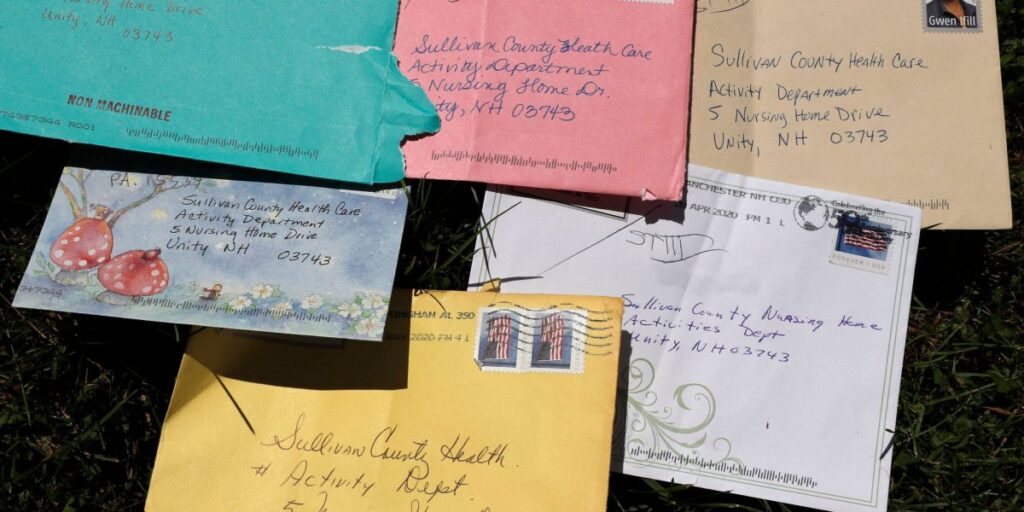 Nursing Home Drive
Unity, NH
03743
NON MACHINABLE
R001
Sullivan County Heath Care
Activity Department
5 Nursing Home Dr.
ity, NH 03743
Gwen Ifill
Sullivan County Health Care
Activity Department
5 Nursing Home Drive
Unity, NH 03743
PA
Sullivan County Health Care
Activity Department
5 Nursing Home Drive
Unity NH 03743
347344
ANCHESTER NH 030
APR 2020 PM 1 L
Celebrating the
50
FOREVER USA
Sullivan County Nursing Home
Activities Dept
Unity, NH 03743
INGHAM AL 350
MAY 2020 PM 4 1
Sullivan County Health
# Activity Dept.
5